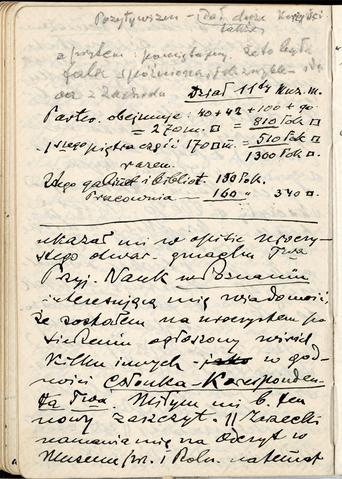 Pozytywizm – dał dużo korzyści
także
a potem: pamiętajmy, że to była
fala spóźniona, jak zwykle
z Zachodu
Dział 11ty Muz. m.
Parter obejmuje: 40+42+100+90
= 270 m. □ = 810 Pok □
1szego piętra część 170 □ m. = 510 Pok □
razem 1300 Pok □.
2ego gabinet i bibliot. 180 Pok.
Pracownia — 160 „ 340 □.
ukazał mi w opisie uroczy-
stego otwar. gmachu Twa
Przyj. Nauk w Poznaniu
interesującą mię wiadomość,
że zostałem na uroczystem po-
siedzeniu ogłoszony wśród
kilku innych – w god-
ności Członka-Koresponden-
ta Twa. Miłym mi b. ten
nowy zaszczyt. || Zarzecki
namawia mię na odczyt w
Muzeum Prz. i Roln. na temat